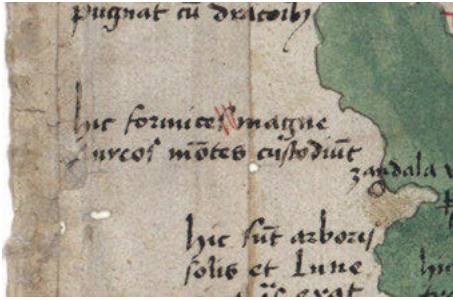 pugnat cū dracōibꝫ
hic formices magne
Aureos mōtes custodiūt
zandala
hic sūt arboris
solis et Lune